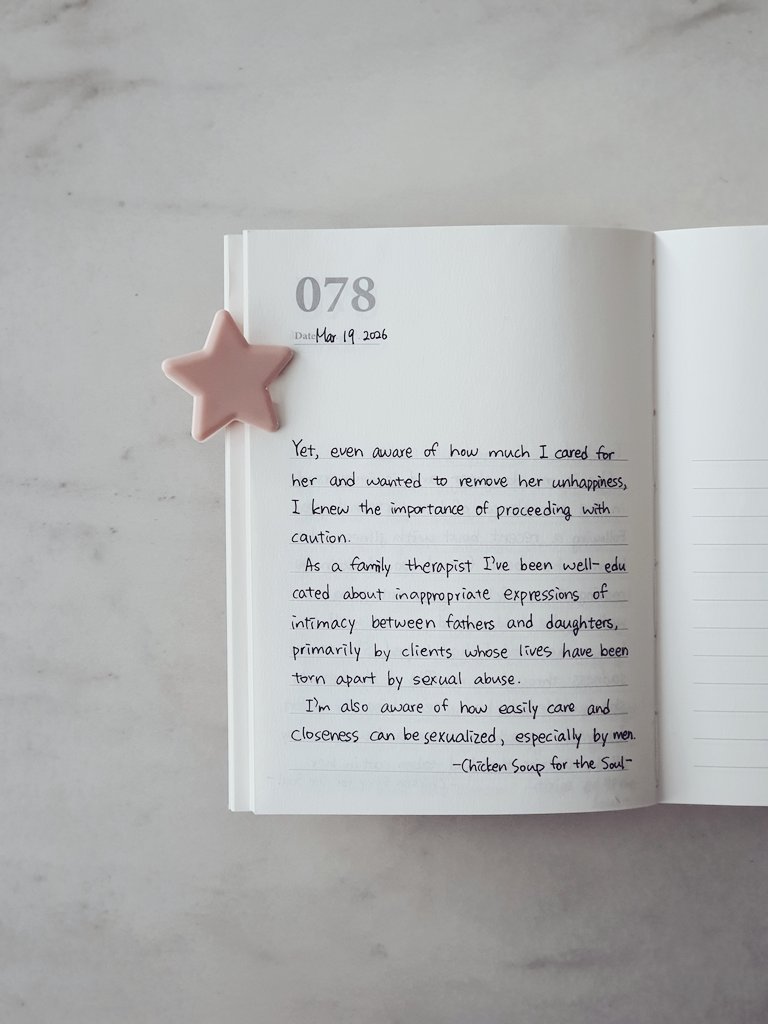 078
Date Mar 19 2026
Yet, even aware of how much I cared for
her and wanted to remove her unhappiness,
I knew the importance of proceeding with
caution.
As a family therapist I've been well-edu
cated about inappropriate expressions of
intimacy between fathers and daughters,
primarily by clients whose lives have been
torn apart by sexual abuse.
I'm also aware of how easily care and
closeness can be sexualized, especially by men.
-Chicken Soup for the Soul-